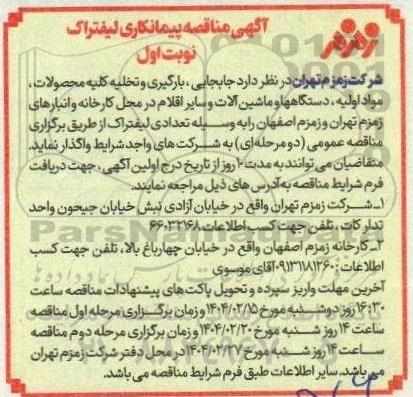 زمزم
آگهی مناقصه پیمانکاری لیفتراک
نوبت اول
شرکت زمزم تهران در نظر دارد جابجایی ، بارگیری و تخلیه کلیه محصولات ،
مواد اولیه ، دستگاهها و ماشین آلات و سایر اقلام در محل کارخانه و انبارهای
زمزم تهران و زمزم اصفهان را به وسیله تعدادی لیفتراک از طریق برگزاری
مناقصه عمومی (دو مرحله ای) به شرکت های واجد شرایط واگذار نماید.
متقاضیان می توانند به مدت ۱۰ روز از تاریخ درج اولین آگهی ، جهت دریافت
فرم شرایط مناقصه به آدرس های ذیل مراجعه نمایند.
۱_ شرکت زمزم تهران واقع در خیابان آزادی نبش خیابان جیحون واحد
تدارکات ، تلفن جهت کسب اطلاعات ۶۶۰۳۲۱۶۸
۲_ کارخانه زمزم اصفهان واقع در خیابان چهارباغ بالا، تلفن جهت کسب
اطلاعات : ۰۹۱۳۱۱۸۱۲۶۰ آقای موسوی
آخرین مهلت واریز سپرده و تحویل پاکت های پیشنهادات مناقصه ساعت
۱۶:۳۰ روز دوشنبه مورخ ۱۴۰۴/۰۲/۱۵ و زمان برگزاری مرحله اول مناقصه
ساعت ۱۴ روز شنبه مورخ ۱۴۰۴/۰۲/۲۰ و زمان برگزاری مرحله دوم مناقصه
ساعت ۱۴ روز شنبه مورخ ۱۴۰۴/۰۲/۲۷ در محل دفتر شرکت زمزم تهران
می باشد. سایر اطلاعات طبق فرم شرایط مناقصه می باشد.